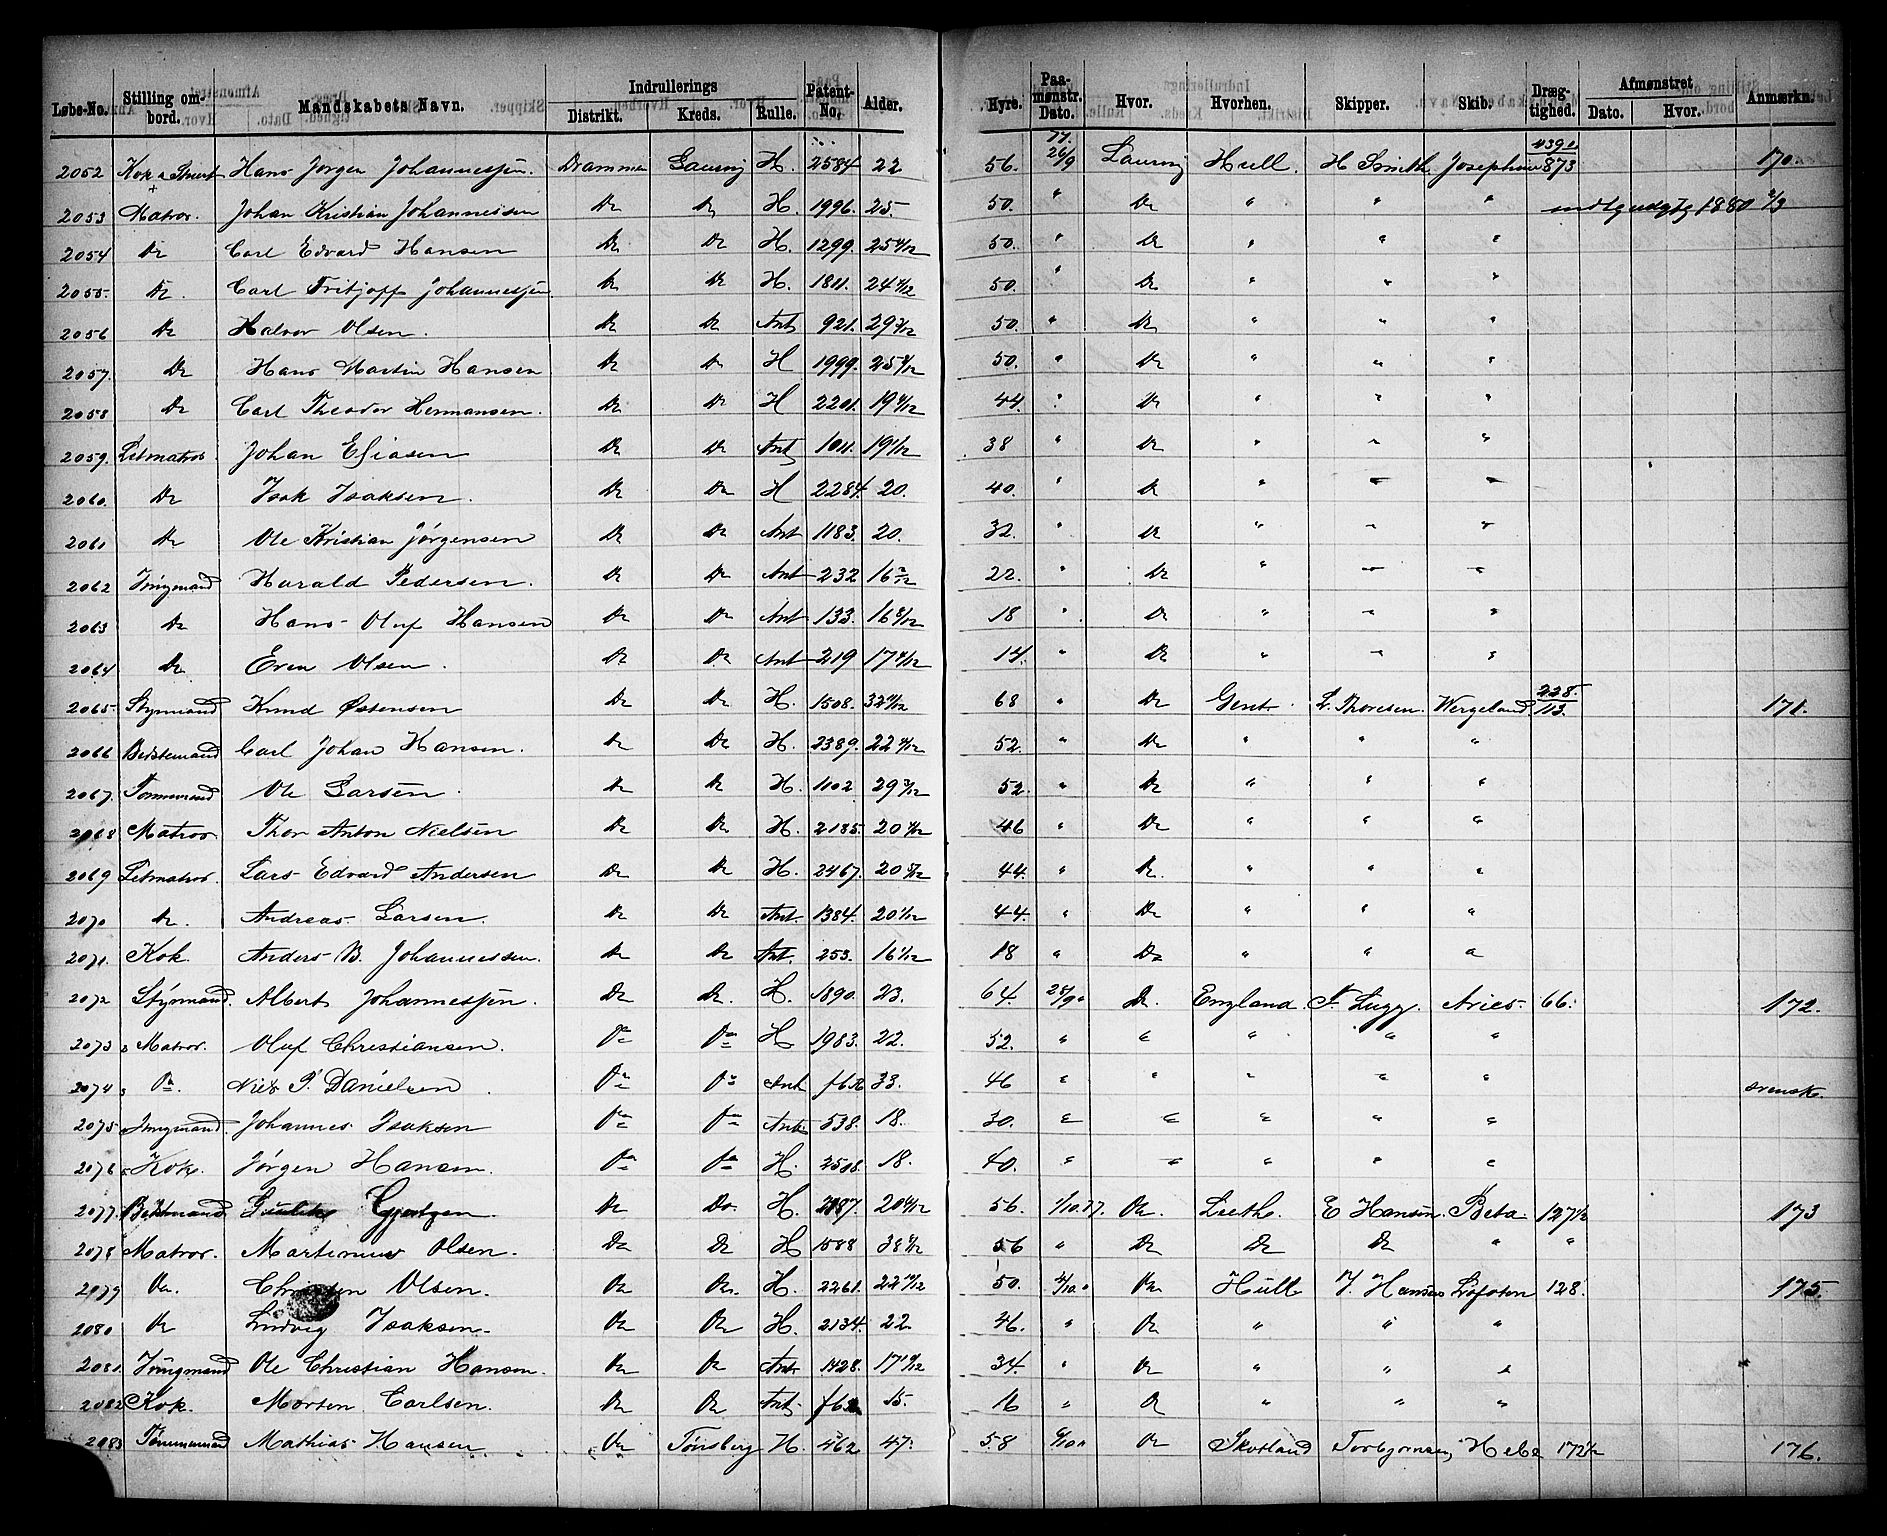 Løbe-No. Stilling ombord. Mandskabets Navn. Indrullerings Distrikt. Kreds. Rulle. Patent-No. Alder. Hyre. Paamønstr. Dato. Hvor. Hvorhen. Skipper. Skib. Drægtighed. Afmønstret Dato. Hvor. Anmærkn.
2052 Hans Jørgen Johannessen. Drammen Laurvig H. 2584 22 56. 77. 26/9 Laurvig Hull. H Smith Josephine 873 170.
2053 Matros. Johan Kristian Johannessen Do Do H. 1996. 25. 50. " Do " " " 1880 2/3
2054 Do Carl Edvard Hansen Do Do H. 1299. 25 50. " Do " " "
2055. Do. Carl Fritjoff Johannessen Do Do H. 1811. 24 50. " Do " " "
2056 Do Halvor Olsen. Do Do Ant 921. 29 50. " Do " " "
2057. Do Hans Martin Hansen Do Do H 1999. 25 50. " Do " " "
2058 Do Carl Theodor Hermansen. Do Do H 2201. 19 44. " Do " " "
2059. Letmatros. Johan Eliasen Do Do Ant 1011. 19 38 " Do " " "
2060. Do Isak Isaksen. Do Do H 2284. 20. 40. " Do " " "
2061 Do Ole Kristian Jørgensen Do Do Ant 1183. 20. 32. " Do " " "
2062 Jungmand Harald Pedersen. Do Do Ant 232 16 22. " Do " " "
2063 Do Hans Oluf Hansen Do Do Ant 133. 16 8/12 18 " Do " " "
2064 Do Even Olsen. Do Do Ant 219 17 14. " Do " " "
2065. Styrmand Knud Østensen Do Do H. 1508. 32 68 " Do Gent. L. Thoresen. Wergeland 228. 113. 171.
2066 Bedstemand Carl Johan Hansen. Do Do H. 2389. 22 52. " Do " " "
2067. Tømmermand Ole Larsen. Do Do H. 1102 29 52. " Do " " "
2068 Matros. Thor Anton Nielsen Do Do H. 2185. 20 46 " Do " " "
2069 Letmatros. Lars Edvard Andersen Do Do H. 2467. 20 44. " Do. " " "
2070 Do. Andreas Larsen. Do Do Ant. 1384. 20 44. " Do " " "
2071. Kok. Anders B. Johannessen. Do Do Ant. 253. 16 18 " Do " " "
2072 Styrmand. Albert Johannessen. Do Do. H. 1890. 23. 64. Do. England. Aries. 66. 172.
2073 Matros. Oluf Christiansen. Do Do H 1983. 22. 52. " " " " "
2074 Do. Niels P. Danielsen Do Do Ant 33. 46 " " " " " svensk.
2075 Jungmand. Johannes Isaksen Do Do Ant 538. 18. 30. " " " " "
2076 Kok. Jørgen Hansen. Do Do H. 2508. 18. 40. " " " " "
2077. Bedstmand Gjertsen. Do Do. H. 20 56. 1/10.77. Do. Leith. E Hansen. Beta. 127½ 173
2078 Matros. Martinius Olsen. Do Do H 1588 38 56 " Do Do Do " "
2079 Do. Christen Olsen. Do Do. H. 2261. 22 50. Do Hull J. Hansen Lofoten 128. 175.
2080 Do Ludvig Isaksen. Do Do H. 2134. 22. 46. " Do " " "
2081. Jungmand Ole Christian Hansen. Do Do Ant 1428. 17 34. " Do " " "
2082 Kok. Morten Carlsen. Do Do Ant 15. 16 " Do " " "
2083 Tømmermand Mathias Hansen Do Tønsberg H. 462 47. 58 Do Skotland Torbjørnsen Hebe 172½ 176.